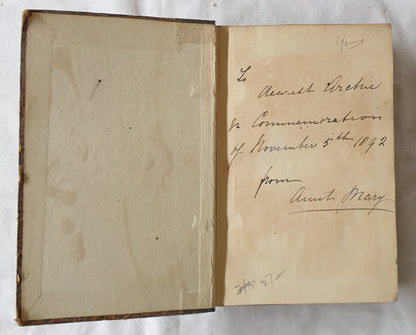 To
dearest Archie
in Commemoration
of November 5th 1892
from
Aunt Mary
5/-